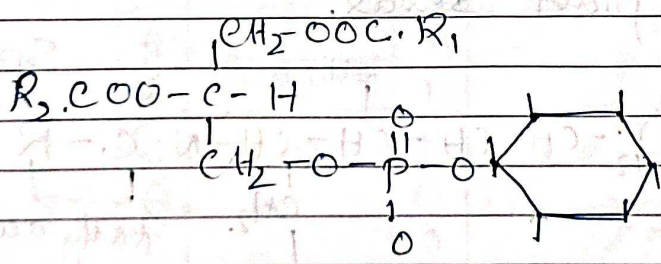 CH2-OOC.R1
R2.COO-C-H
O
CH2-O-P-O
O